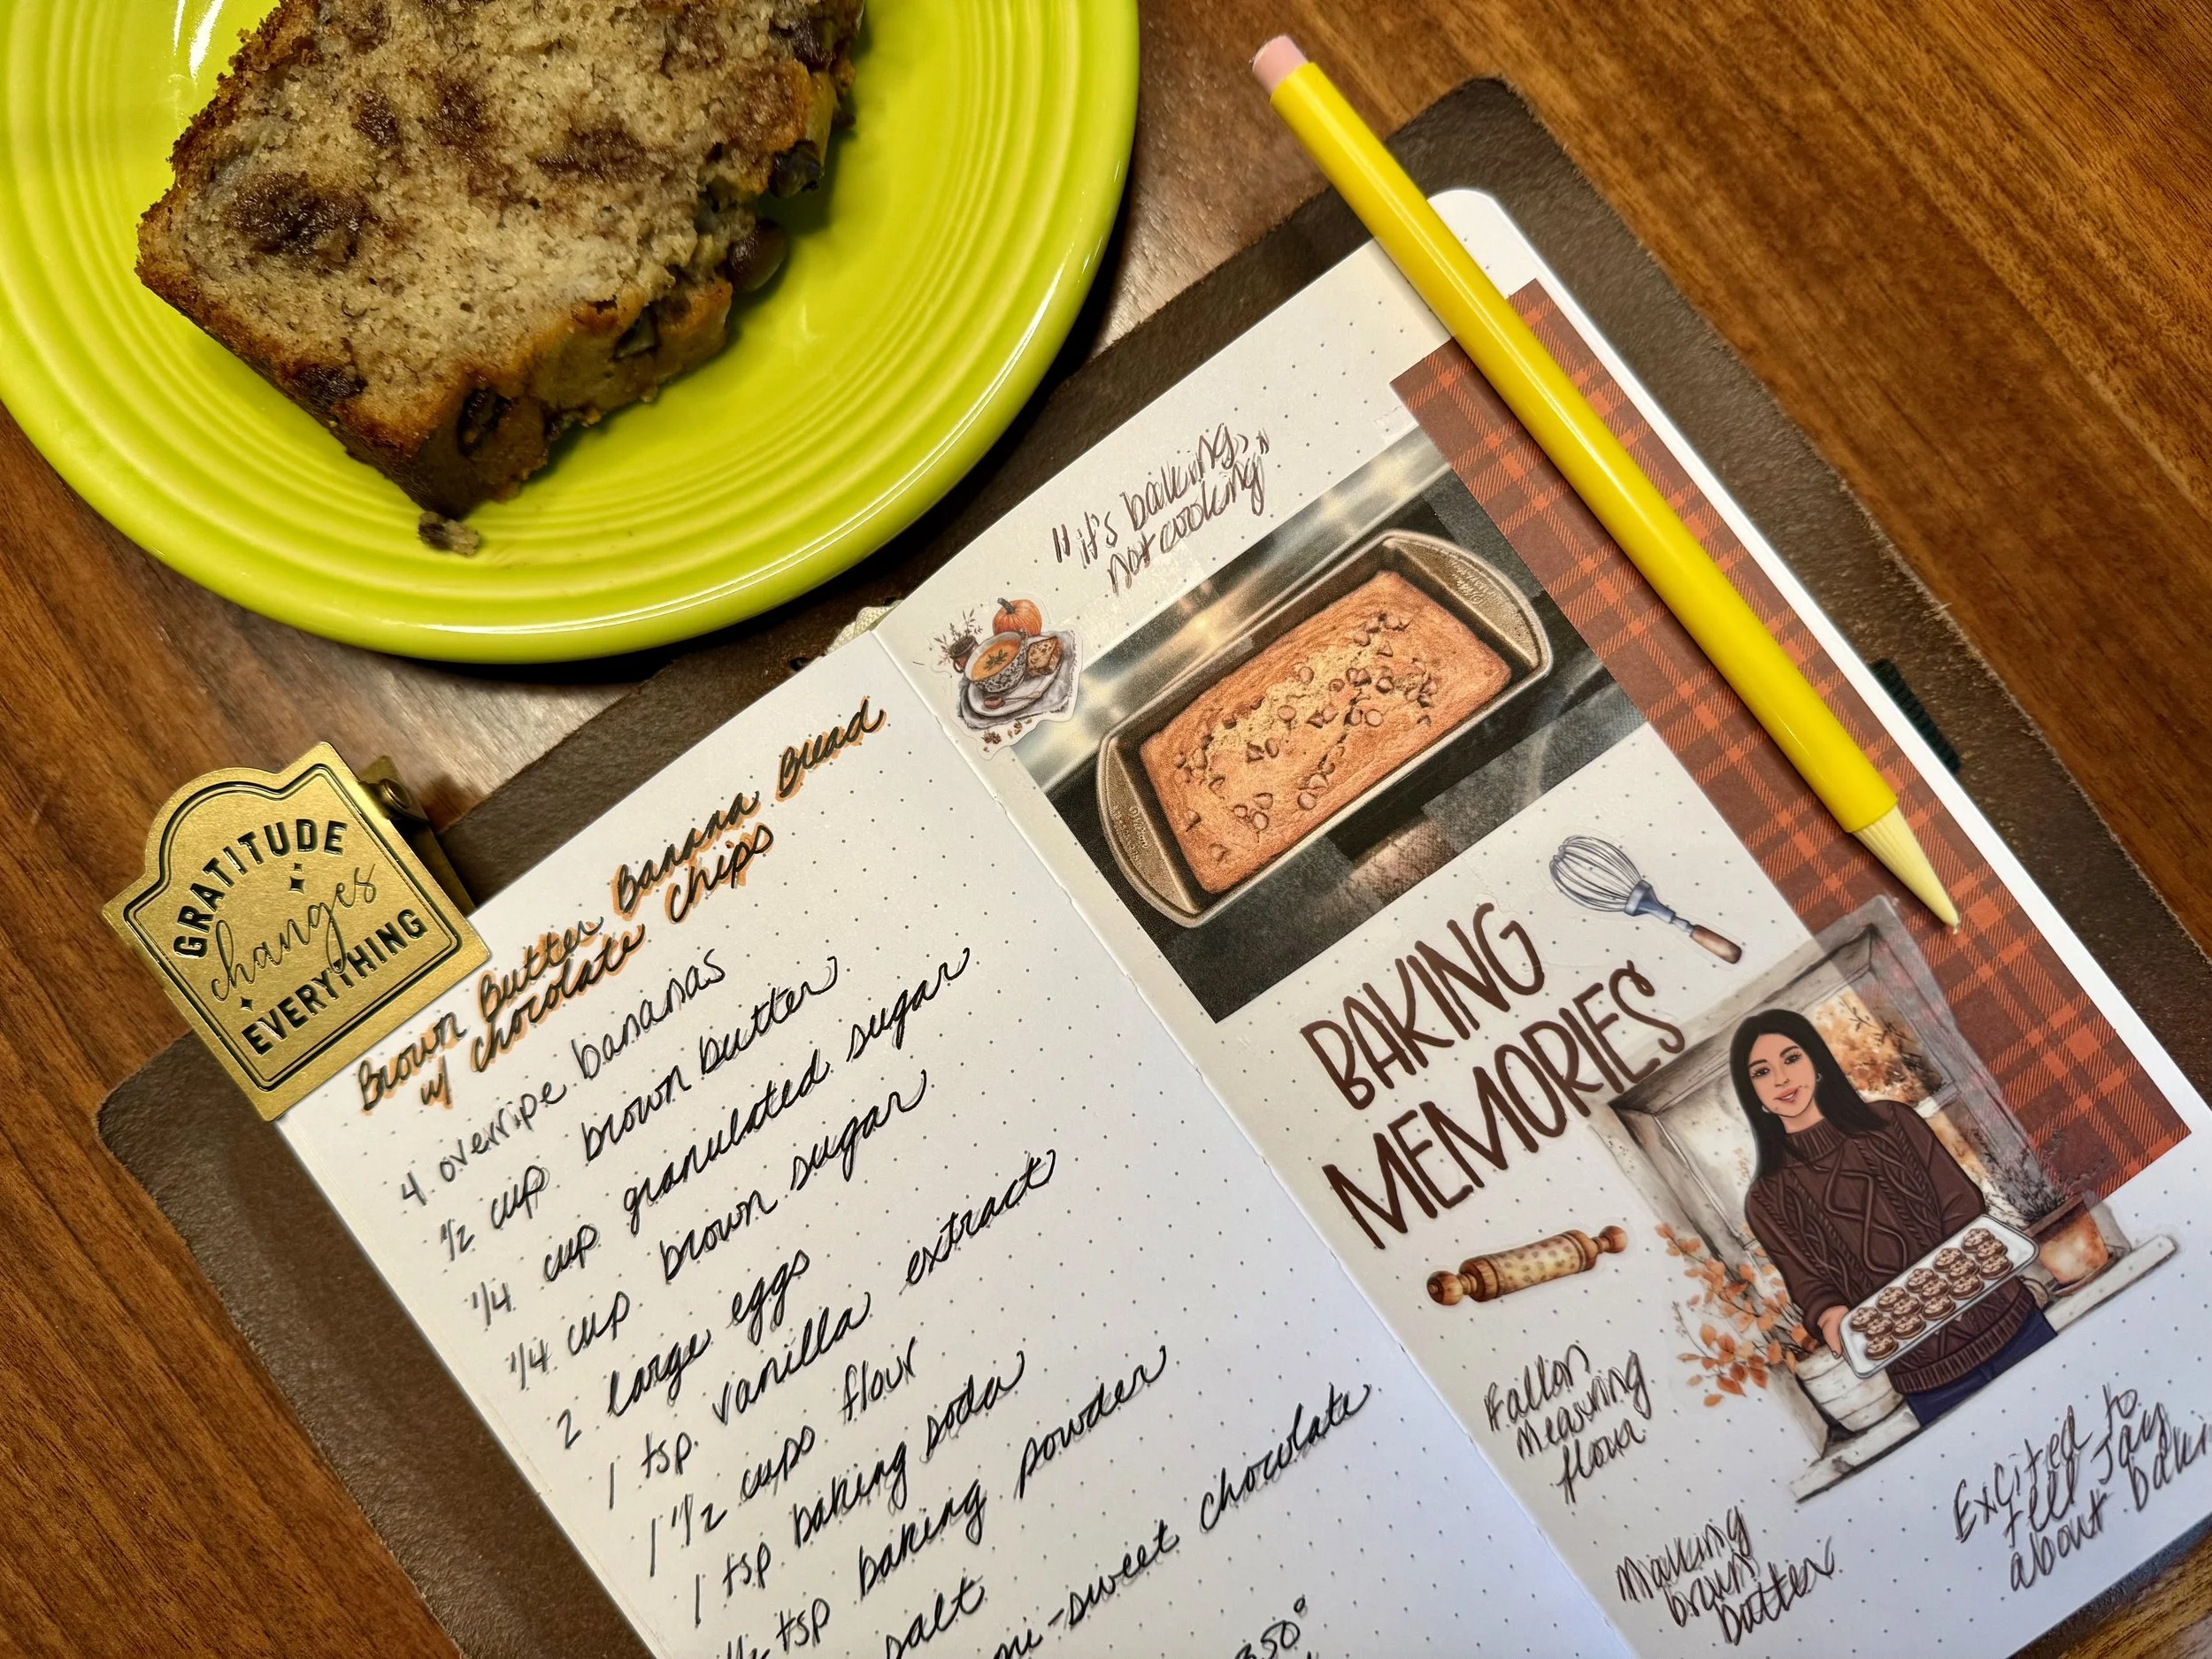 GRATITUDE
changes
EVERYTHING
Brown Butter Banana Bread
w/ chocolate chips
4 overripe bananas
1/2 cup brown butter
1/4 cup granulated sugar
1/4 cup brown sugar
2 large eggs
1 tsp vanilla extract
1 1/2 cups flour
1 tsp baking soda
1/2 tsp baking powder
salt
-sweet chocolate
350°
"it's baking,
not cooking"
BAKING
MEMORIES
Fallon
measuring
flour
Making
brown
butter
Excited to
tell Jay
about